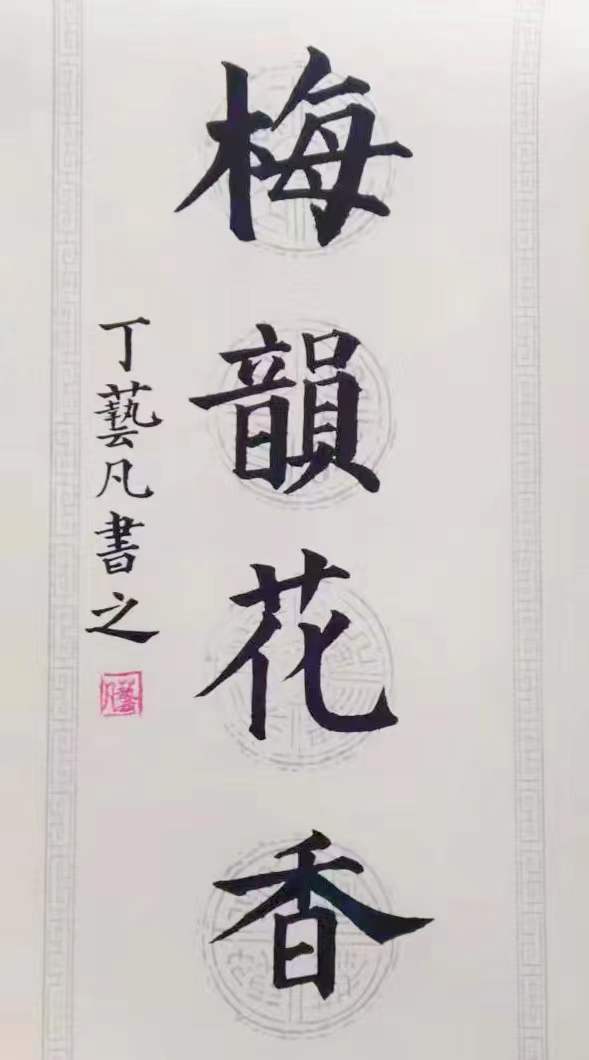 梅韻花香
丁藝凡書之
藝凡